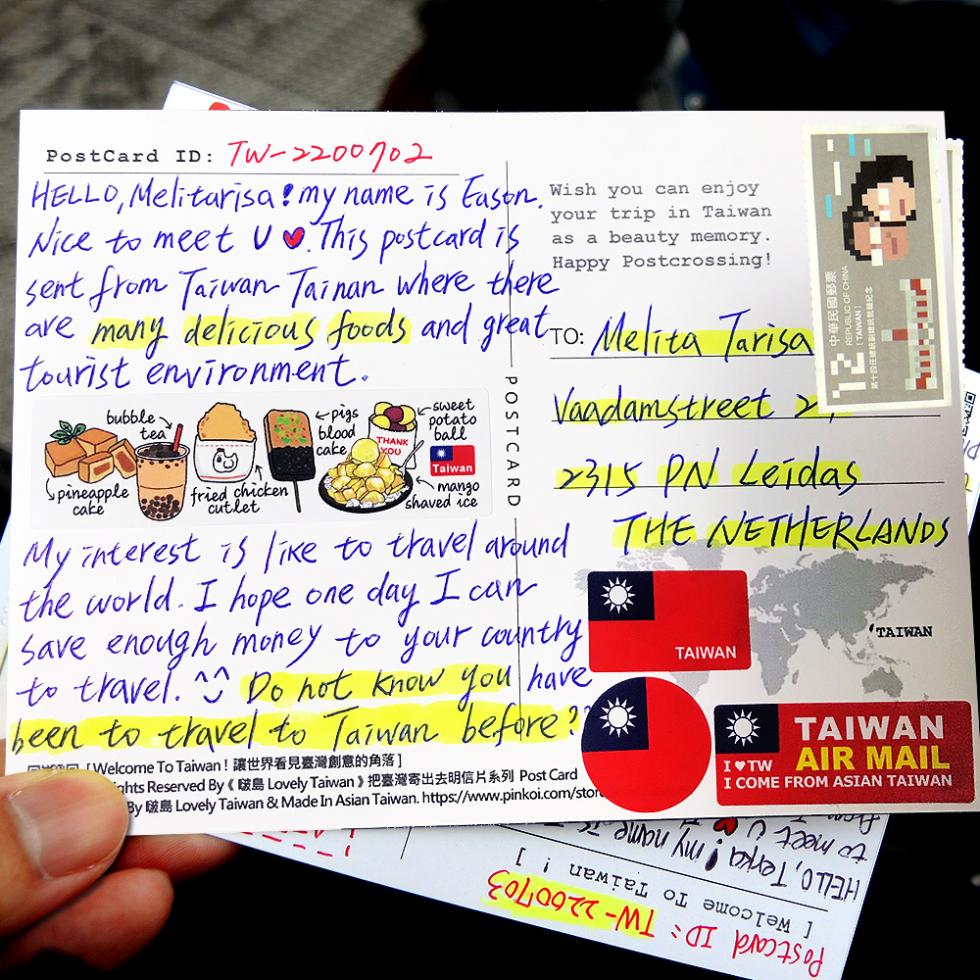 PostCard ID: TW-2200702
HELLO, Melitarisa! my name is Eason.
Nice to meet U ♥. This postcard is
sent from Taiwan Tainan where there
are many delicious foods and great
tourist environment.
bubble
tea
pineapple
cake
fried chicken
cutlet
pigs
blood
cake
THANK
YOU
sweet
potato
ball
Taiwan
mango
shaved ice
My interest is like to travel around
the world. I hope one day I can
save enough money to your country
to travel. ^^ Do not know you have
been to travel to Taiwan before?
[Welcome To Taiwan! 讓世界看見臺灣創意的角落]
Rights Reserved By《 啵島 Lovely Taiwan 》把臺灣寄出去明信片系列 Post Card
By 啵島 Lovely Taiwan & Made In Asian Taiwan. https://www.pinkoi.com/stor
POSTCARD
Wish you can enjoy
your trip in Taiwan
as a beauty memory.
Happy Postcrossing!
12
中華民國郵票
REPUBLIC OF CHINA
[TAIWAN]
第十四任總統副總統就職紀念
TO: Melita Tarisa
Vaadamstreet 2,
2315 PN Leidas
THE NETHERLANDS
TAIWAN
TAIWAN
TAIWAN
AIR MAIL
I ♥ TW
I COME FROM ASIAN TAIWAN
Postcard ID: TW-2200703
[ Welcome To Taiwan ! ]
HELLO, Terka! my name is
to meet U ♥